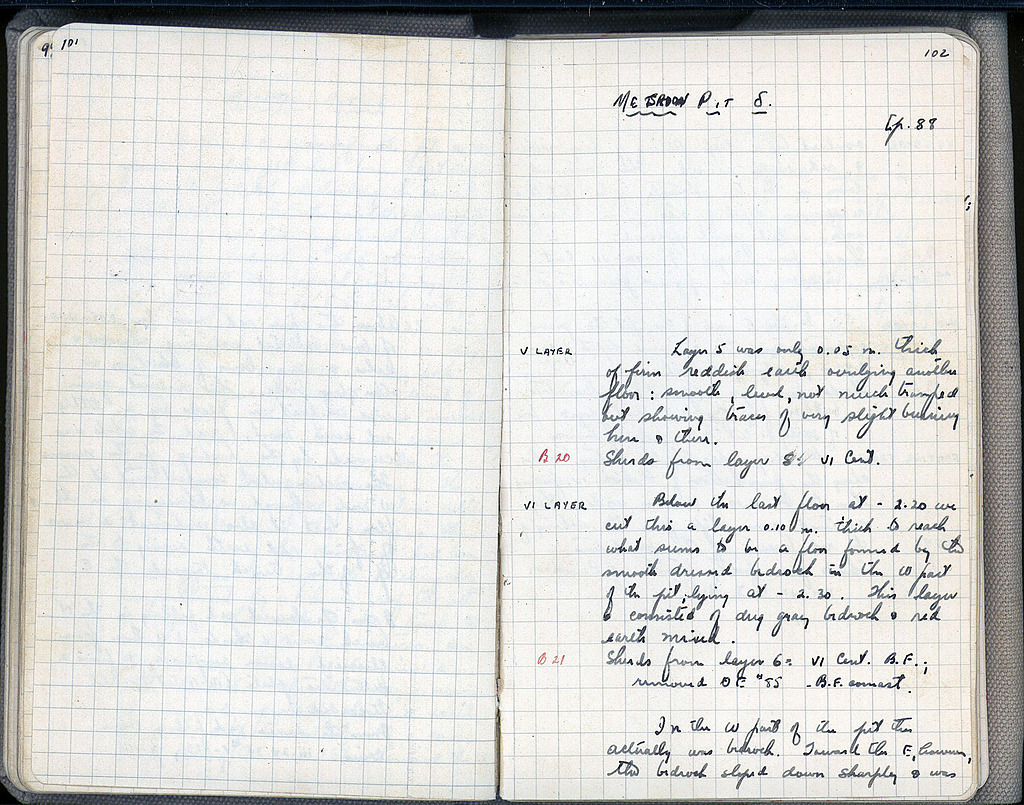 9
101
102
METROON PIT 8.
Cp. 88
V LAYER Layer 5 was only 0.05 m. thick
of firm reddish earth overlying another
floor: smooth, level, not much tramped
but showing traces of very slight burning
here & there.
B 20 Sherds from layer VI Cent.
VI LAYER Below the last floor at - 2.20 we
cut thru a layer 0.10 m. thick to reach
what seems to be a floor formed by the
smooth dressed bedrock in the W part
of the pit, lying at - 2.30. This layer
consisted of dug gray bedrock & red
earth mixed.
B 21 Sherds from layer 6 = VI Cent. B.F.;
removed - B.F.
In the W part of the pit this
actually was bedrock. Toward the E, however,
the bedrock sloped down sharply & was